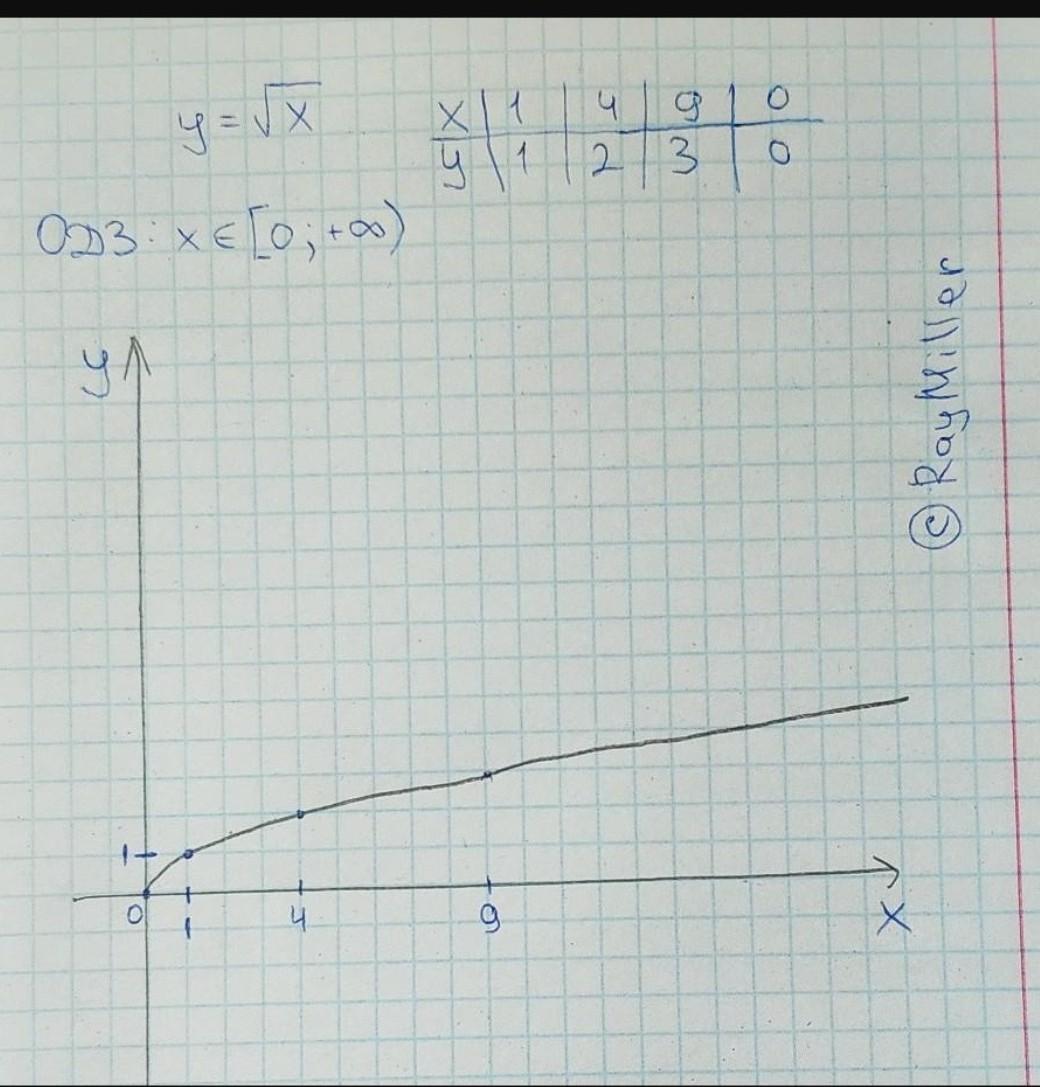 y = √x
x | 1 | 4 | 9 | 0
y | 1 | 2 | 3 | 0
ОДЗ: x ∈ [0; +∞)
y
© RayMiller
1
0 1 4 9 x